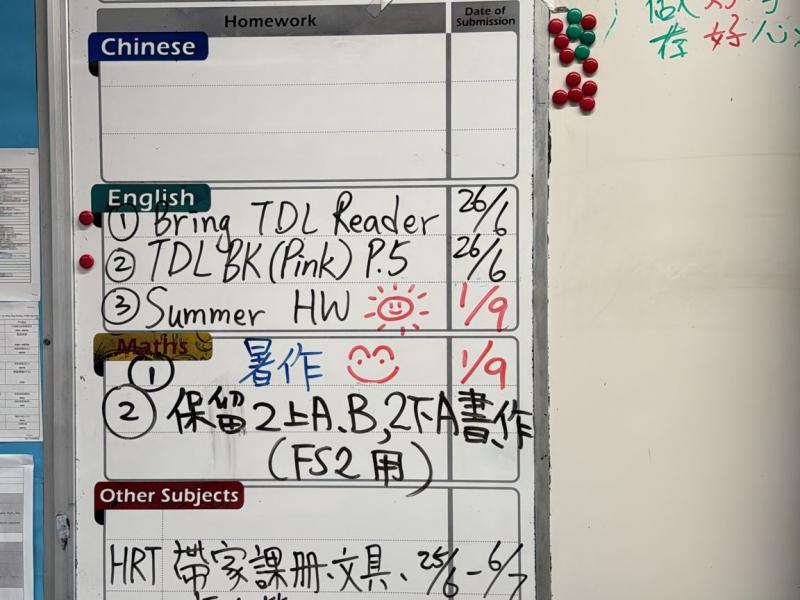 Homework
Date of Submission
Chinese
English
① Bring TDL Reader 26/6
② TDL BK (Pink) P.5 26/6
③ Summer HW 1/9
Maths
① 暑作 1/9
② 保留2上A、B,2下A書、作
(FS2用)
Other Subjects
HRT 帶家課册、文具、25/6-6/7
存好心